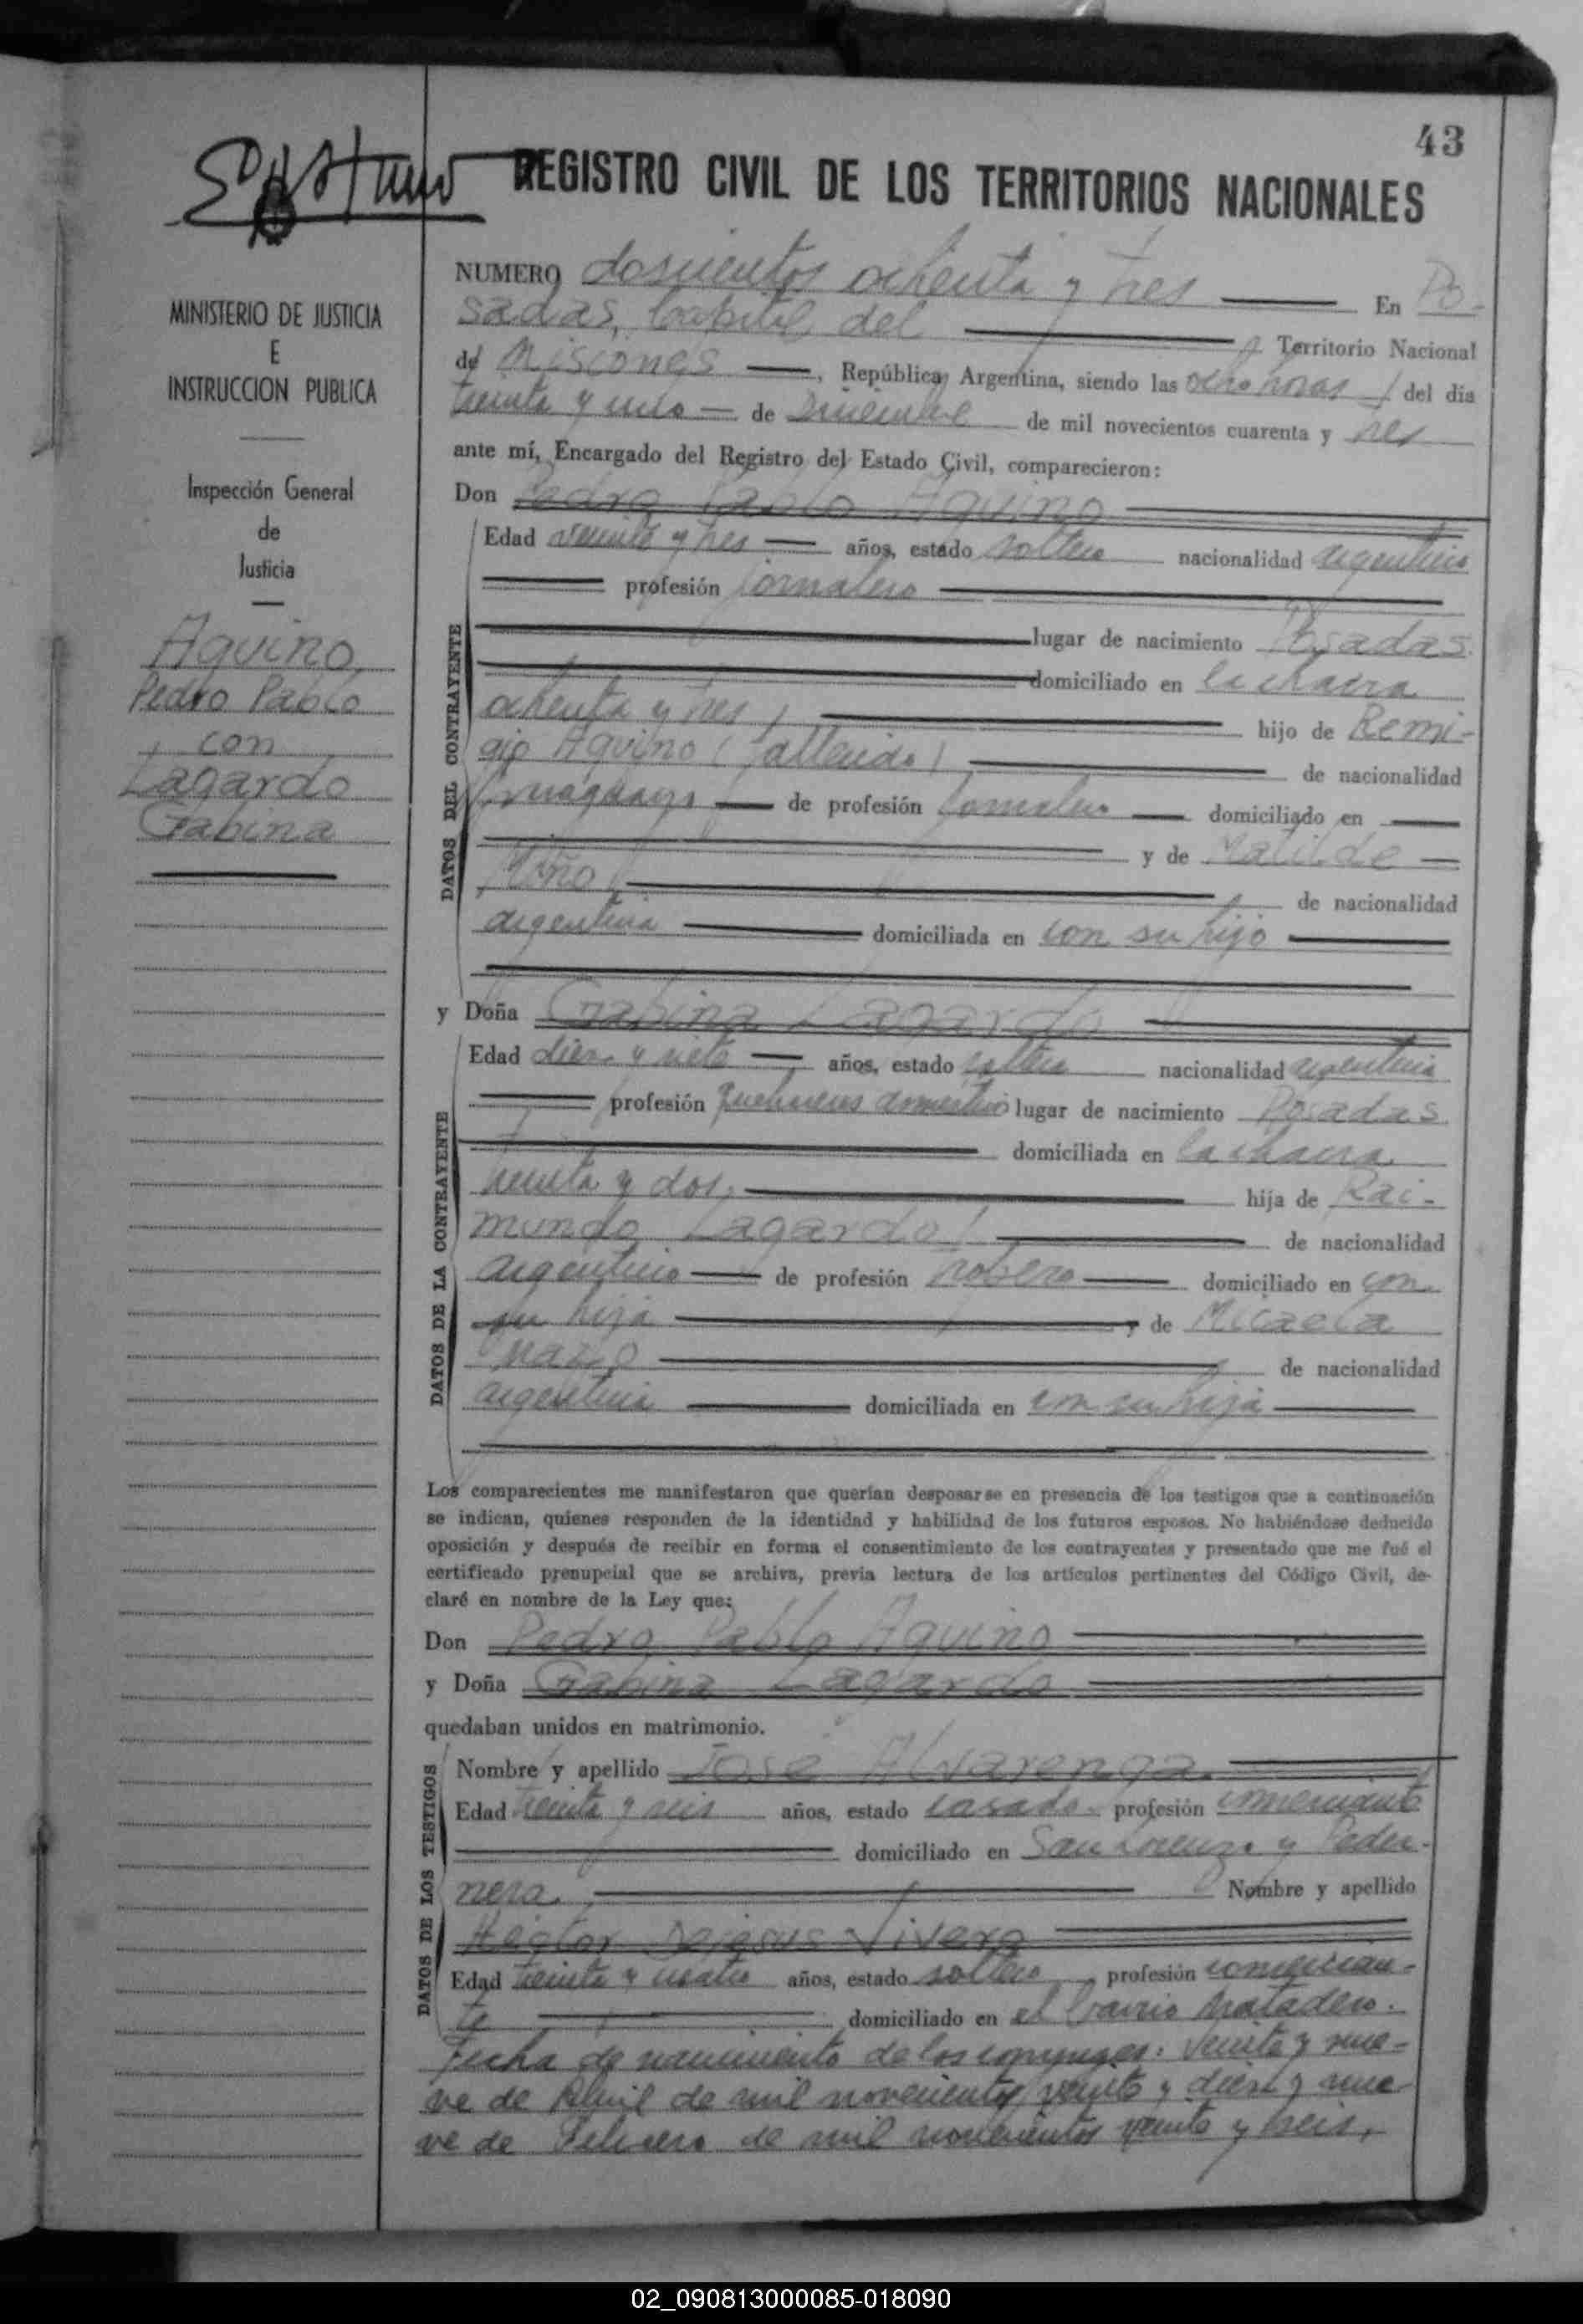 43
REGISTRO CIVIL DE LOS TERRITORIOS NACIONALES
MINISTERIO DE JUSTICIA
E
INSTRUCCION PUBLICA
Inspección General
de
Justicia
Aquino
Pedro Pablo
con
Lagardo
Gabina
NUMERO doscientos ochenta y tres En Po-
sadas, Capital del Territorio Nacional
de Misiones, República Argentina, siendo las ocho horas del dia
treinta y uno de Diciembre de mil novecientos cuarenta y tres
ante mí, Encargado del Registro del Estado Civil, comparecieron:
Don Pedro Pablo Aquino
DATOS DEL CONTRAYENTE
Edad veinte y tres años, estado soltero nacionalidad argentino
profesión jornalero
lugar de nacimiento Posadas
domiciliado en la chacra
ochenta y tres, hijo de Remi-
gio Aquino (fallecido) de nacionalidad
de profesión jornalero domiciliado en
y de Matilde
Miño de nacionalidad
argentina domiciliada en con su hijo
y Doña Gabina Lagardo
DATOS DE LA CONTRAYENTE
Edad diez y siete años, estado soltera nacionalidad argentina
profesión quehaceres domesticos lugar de nacimiento Posadas
domiciliada en la chacra
treinta y dos, hija de Rai-
mundo Lagardo de nacionalidad
argentino de profesión domiciliado en con
su hija y de Micaela
de nacionalidad
argentina domiciliada en con su hija
Los comparecientes me manifestaron que querían desposarse en presencia de los testigos que a continuación
se indican, quienes responden de la identidad y habilidad de los futuros esposos. No habiéndose deducido
oposición y después de recibir en forma el consentimiento de los contrayentes y presentado que me fué el
certificado prenupcial que se archiva, previa lectura de los artículos pertinentes del Código Civil, de-
claré en nombre de la Ley que:
Don Pedro Pablo Aquino
y Doña Gabina Lagardo
quedaban unidos en matrimonio.
DATOS DE LOS TESTIGOS
Nombre y apellido José Alvarenga
Edad treinta y seis años, estado casado profesión comerciante
domiciliado en San Lorenzo y Peder-
nera Nombre y apellido
Héctor Dejesus Vivero
Edad treinta y cuatro años, estado soltero profesión comercian-
te domiciliado en el barrio Matadero.
Fecha de nacimiento de los conyuges: veinte y nue-
ve de Abril de mil novecientos veinte y diez y nue-
ve de Febrero de mil novecientos veinte y seis,
02_090813000085-018090